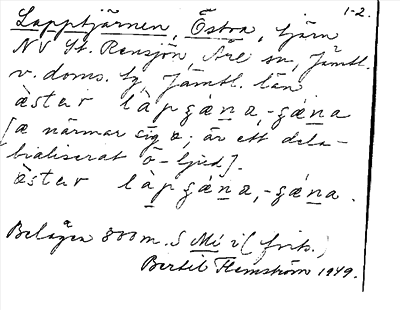 1-2.
Lapptjärnen, Östra, tjärn
NV St. Rensjön, Åre sn, Jämtl.
v. doms. tg, Jämtl. län
æ̀stæv làpgǽna, -gǽna
[æ närmar sig a; är ett dela-
bialiserat ö-ljud].
æ̀stæv làpgǽna, -gǽna.
Belägen 800 m. S Mi i (frits.)
Bertil Flemström 1949.